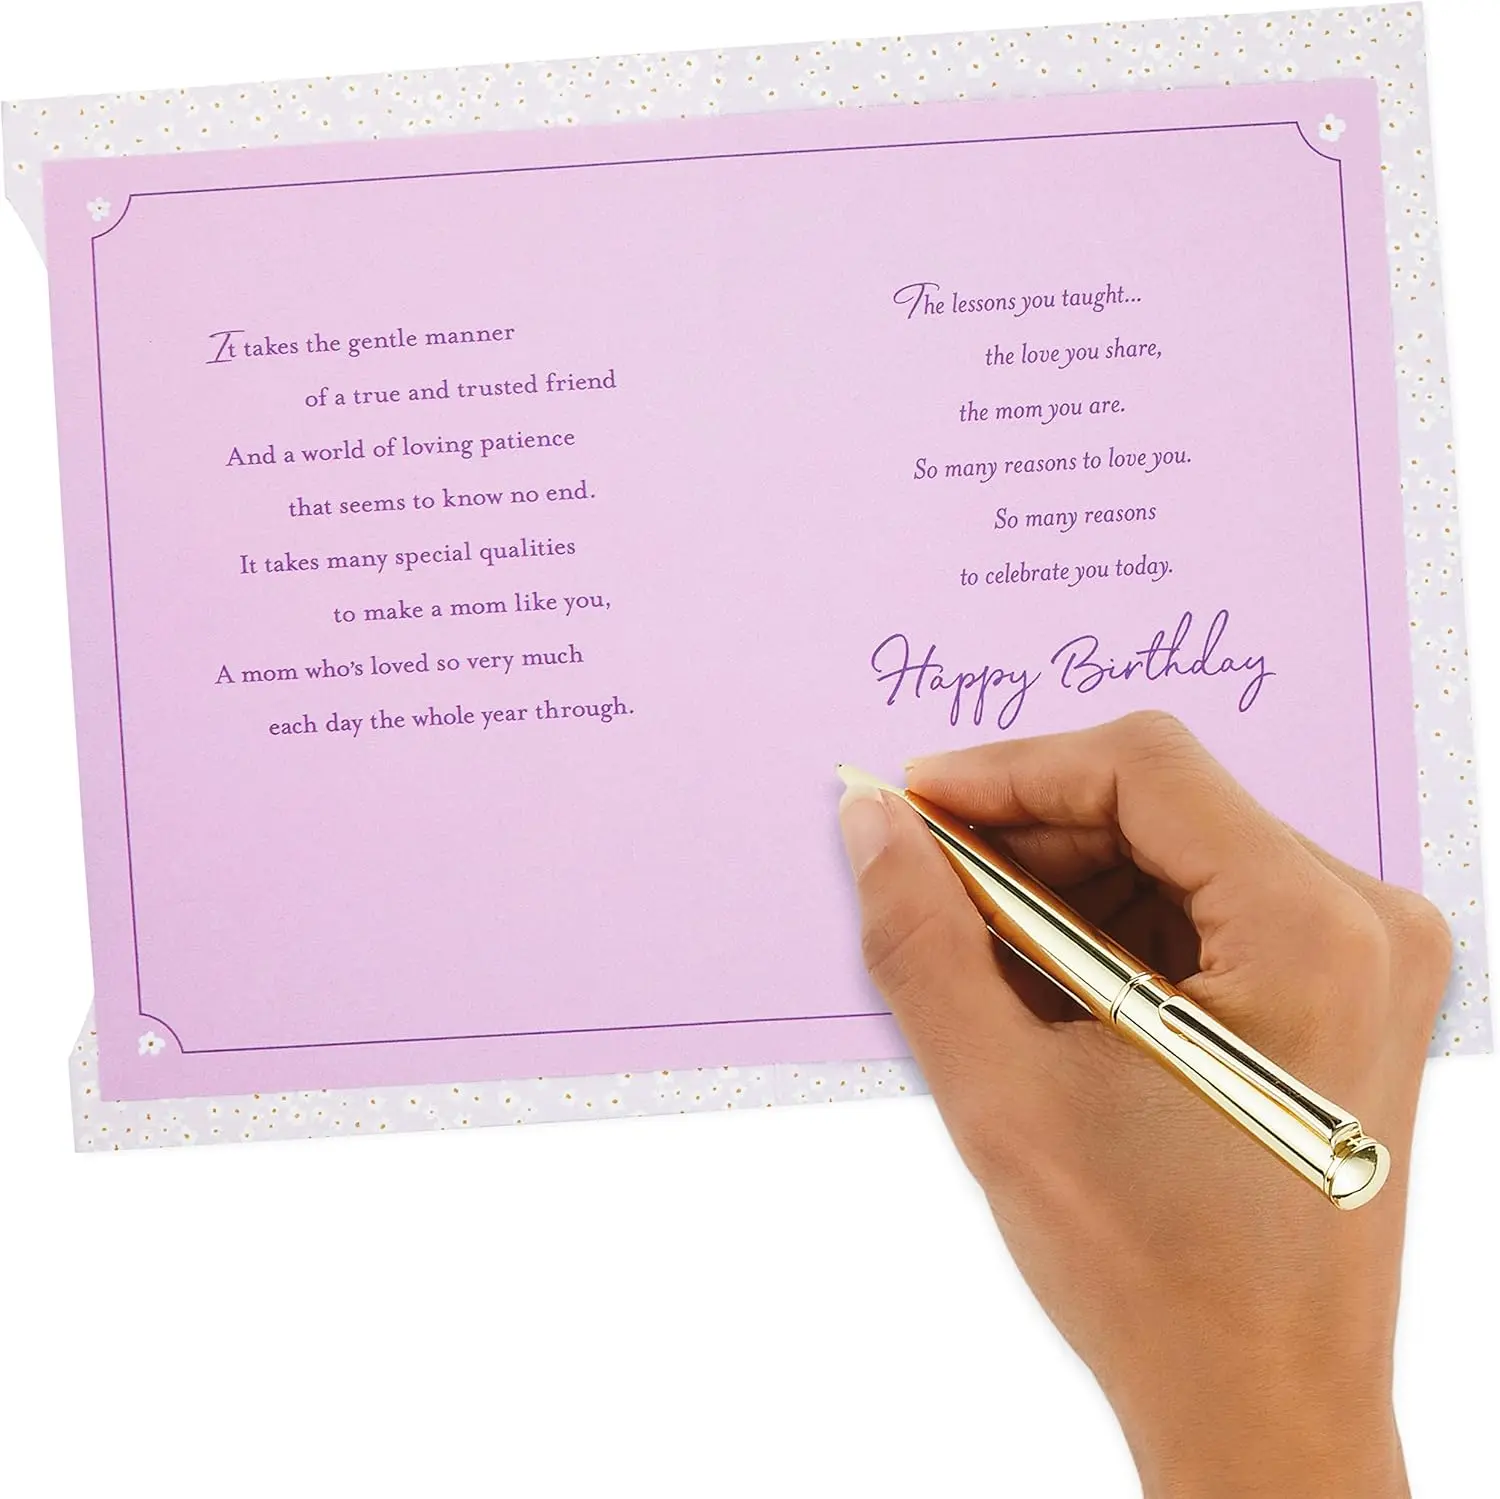 It takes the gentle manner
of a true and trusted friend
And a world of loving patience
that seems to know no end.
It takes many special qualities
to make a mom like you,
A mom who's loved so very much
each day the whole year through.
The lessons you taught...
the love you share,
the mom you are.
So many reasons to love you.
So many reasons
to celebrate you today.
Happy Birthday